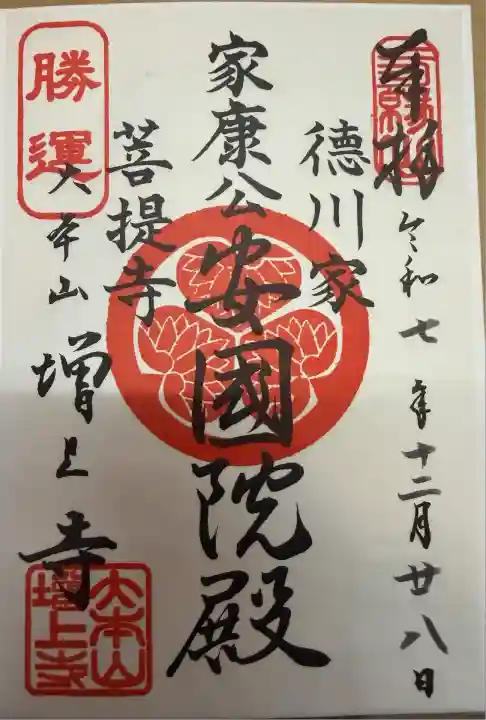 奉拝
令和七年十二月廿八日
德川家
家康公安國院殿
菩提寺
勝運
大本山増上寺
大本山
增上寺